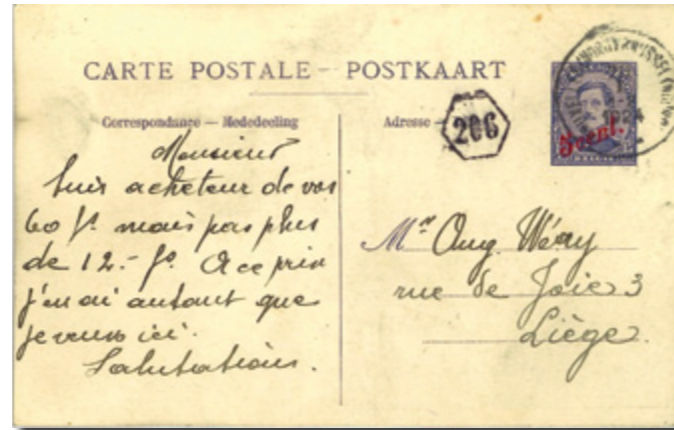 CARTE POSTALE - POSTKAART
Correspondance — Mededeeling
Adresse —
206
5 cent.
Monsieur
Suis acheteur de vos
60 fs. mais pas plus
de 12.- fs. A ce prix
j'en ai autant que
je veux ici.
Salutations.
Mr. Aug. Wéry
rue de Joie 3
Liège.